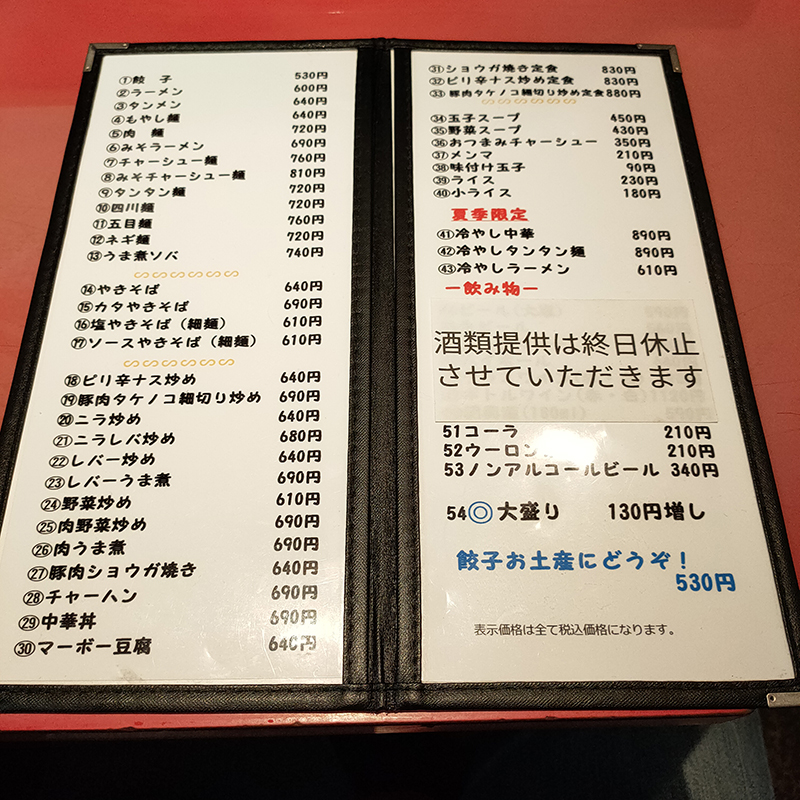 ①餃子 530円
②ラーメン 600円
③タンメン 640円
④もやし麺 640円
⑤肉 麺 720円
⑥みそラーメン 690円
⑦チャーシュー麺 760円
⑧みそチャーシュー麺 810円
⑨タンタン麺 720円
⑩四川麺 720円
⑪五目麺 760円
⑫ネギ麺 720円
⑬うま煮ソバ 740円
⑭やきそば 640円
⑮カタやきそば 690円
⑯塩やきそば（細麺） 610円
⑰ソースやきそば（細麺） 610円
⑱ピリ辛ナス炒め 640円
⑲豚肉タケノコ細切り炒め 690円
⑳ニラ炒め 640円
㉑ニラレバ炒め 680円
㉒レバー炒め 640円
㉓レバーうま煮 690円
㉔野菜炒め 610円
㉕肉野菜炒め 690円
㉖肉うま煮 690円
㉗豚肉ショウガ焼き 640円
㉘チャーハン 690円
㉙中華丼 690円
㉚マーボー豆腐 640円
㉛ショウガ焼き定食 830円
㉜ピリ辛ナス炒め定食 830円
㉝豚肉タケノコ細切り炒め定食 880円
㉞玉子スープ 450円
㉟野菜スープ 430円
㊱おつまみチャーシュー 350円
㊲メンマ 210円
㊳味付け玉子 90円
㊴ライス 230円
㊵小ライス 180円
夏季限定
㊶冷やし中華 890円
㊷冷やしタンタン麺 890円
㊸冷やしラーメン 610円
ー飲み物ー
酒類提供は終日休止
させていただきます
51コーラ 210円
52ウーロン 210円
53ノンアルコールビール 340円
54◎大盛り 130円増し
餃子お土産にどうぞ！
530円
表示価格は全て税込価格になります。